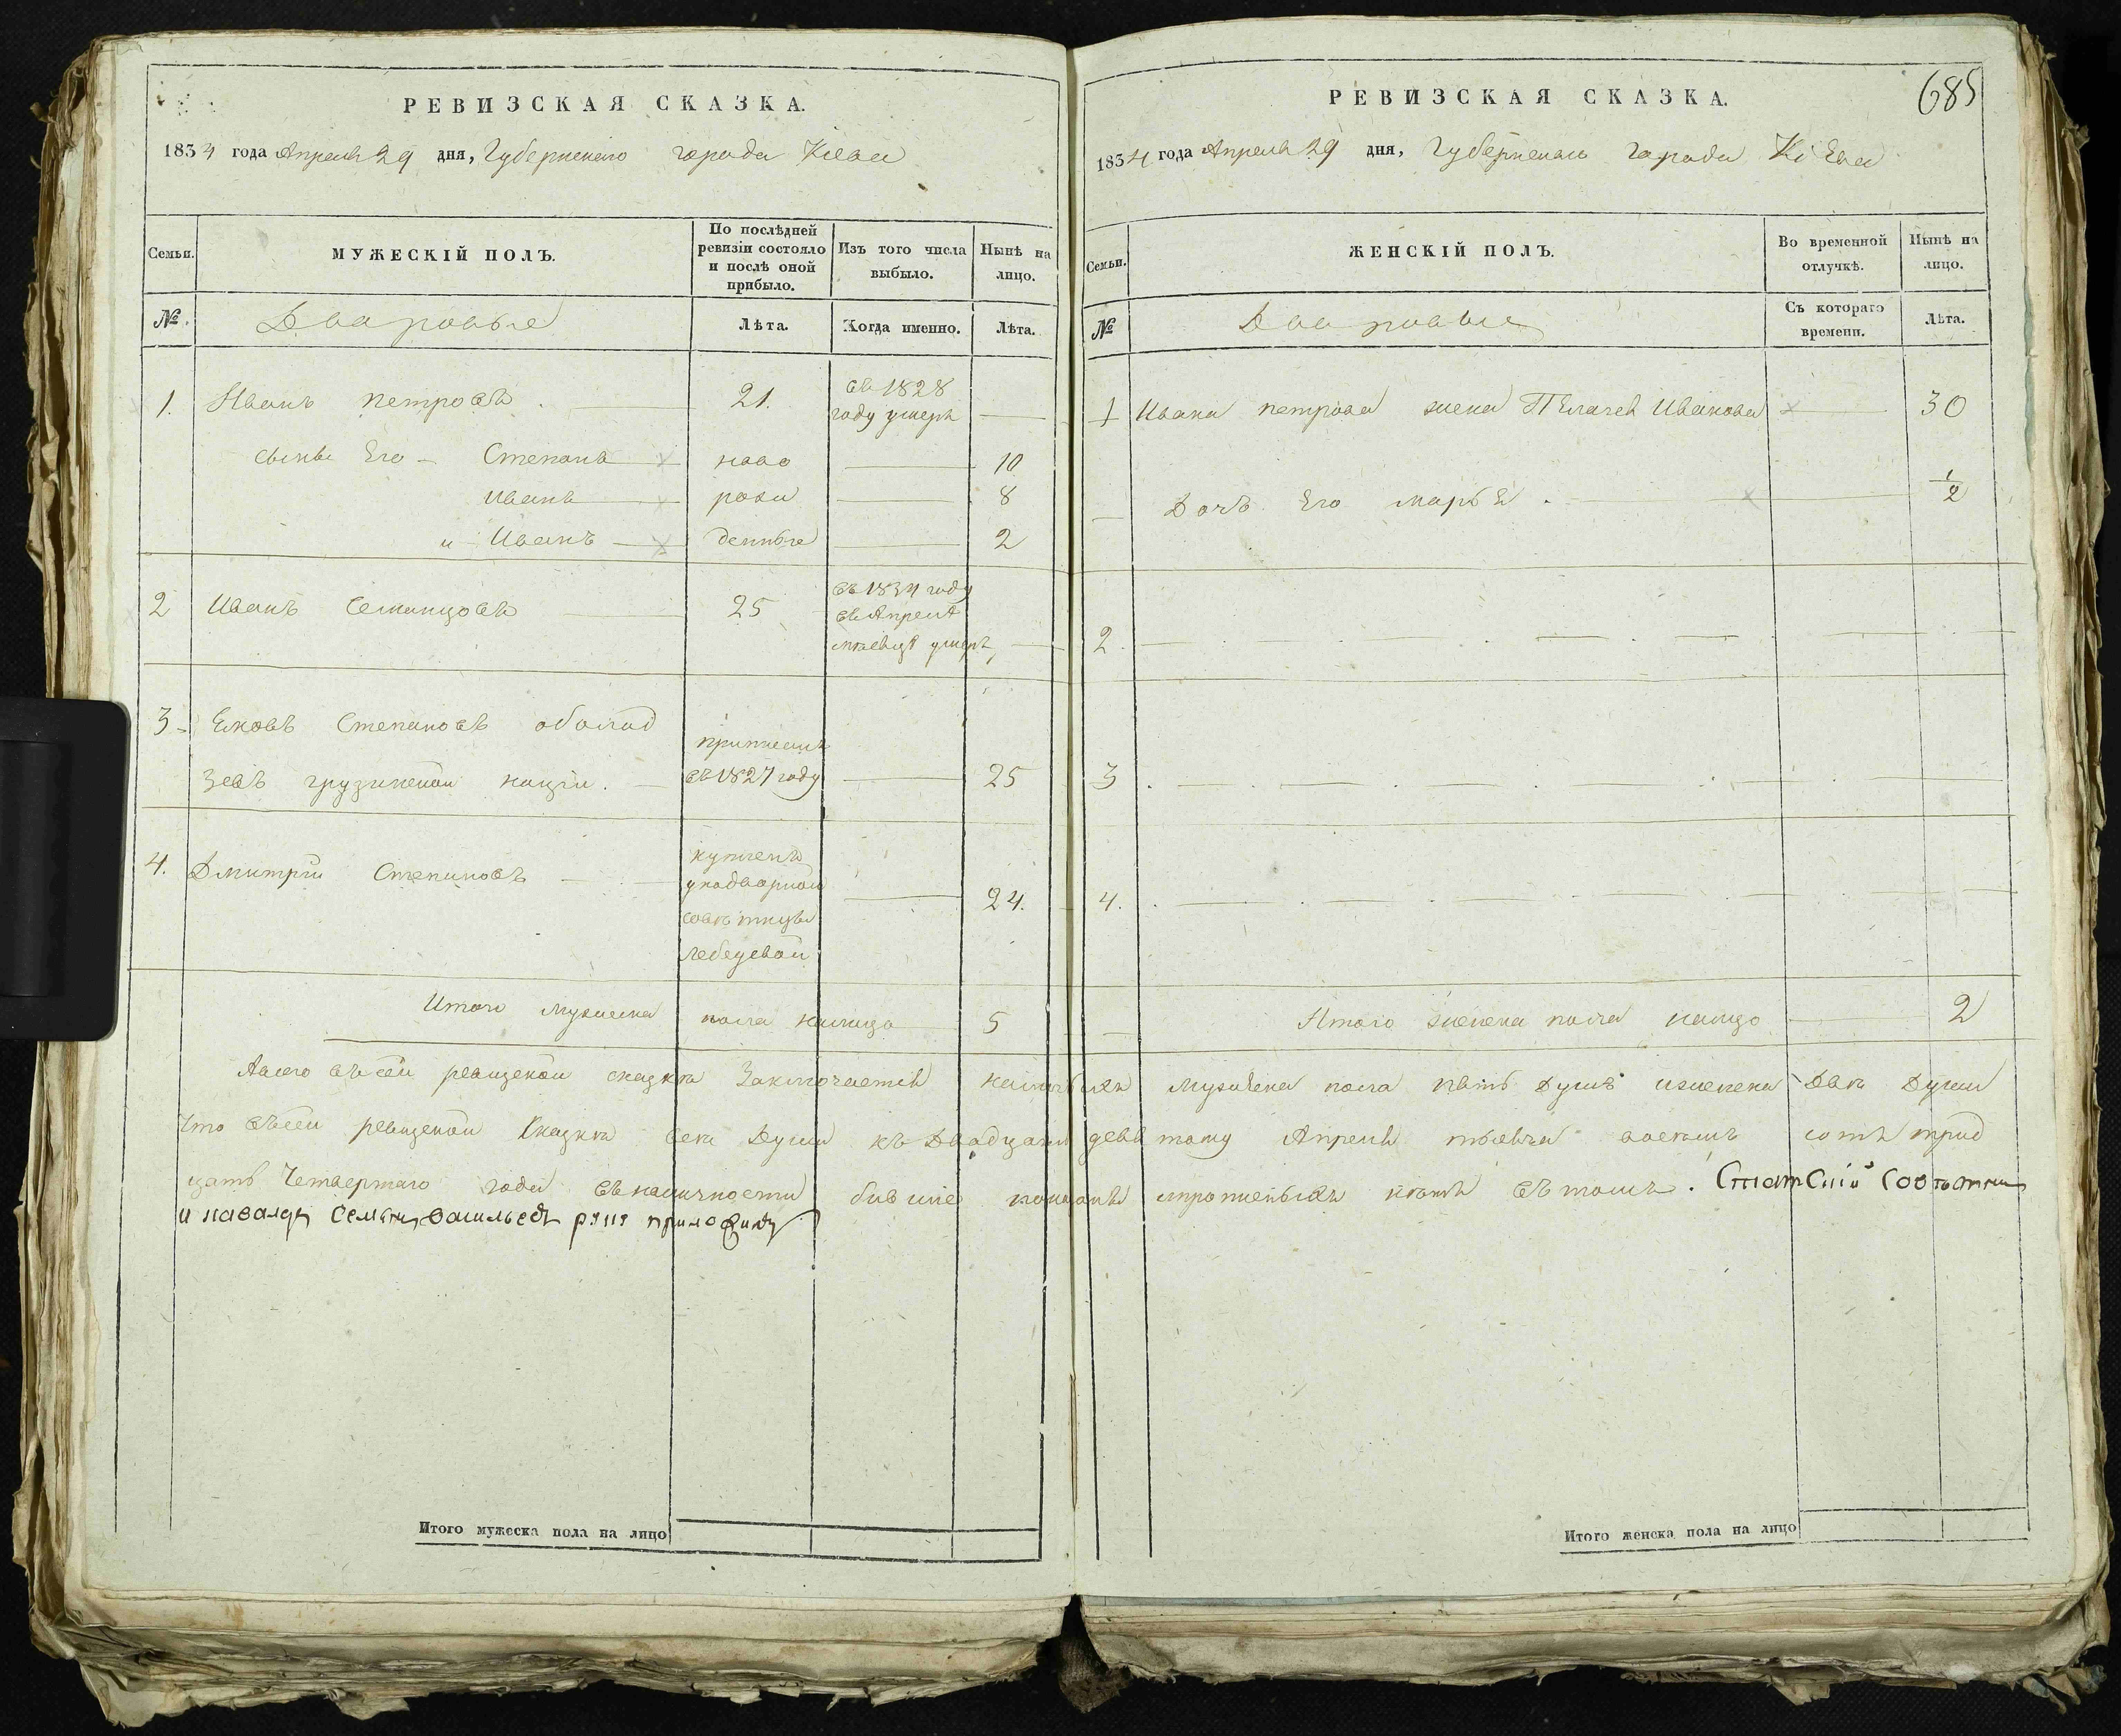 РЕВИЗСКАЯ СКАЗКА.
1834 года Апреля 29 дня, Губернскаго города Киева
Семьи.
МУЖЕСКІЙ ПОЛЪ.
По послѣдней ревизіи состояло и послѣ оной прибыло.
Изъ того числа выбыло.
Нынѣ на лицо.
№.
Дваровые
Лѣта.
Когда именно.
Лѣта.
1. Иванъ петровъ 21. въ 1828 году умеръ
сынвя Его Степанъ ново 10
Иванъ рож 8
и Иванъ денные 2
2 Иванъ Семинцовъ 25 въ 1834 году въ Апреле месяце умеръ
3 Яковъ Степановъ
грузинской нацïи. приписанъ въ 1827 году 25
4. Дмитрïй Степановъ купленъ у надворной советницы лебедевой 24.
Итого мужеска пола налицо 5
РЕВИЗСКАЯ СКАЗКА.
685
1834 года Апреля 29 дня, Губернскаго Города КіЕва
Семьи.
ЖЕНСКІЙ ПОЛЪ.
Во временной отлучкѣ.
Нынѣ на лицо.
№
Дваровые
Съ котораго времени.
Лѣта.
1 Ивана петрова жена ПЕлагея Иванова 30
Дочь Его марья 1/2
2.
3
4.
Итого женска пола налицо 2
Авсего въ сей ревизской сказке Заключается наличныхъ мужеска пола пять душъ и женска Две Души
Что въ сей ревизской Сказке все Души къ Двадцать девятому Апреля месяца восемъ сотъ трид
цать Четвертаго года въ наличности бывшïе показаны и прописныхъ нетъ въ томъ. Статскій Советник
и кавалеръ Семенъ Васильевъ руку приложилъ
Итого мужеска пола на лицо
Итого женска пола на лицо